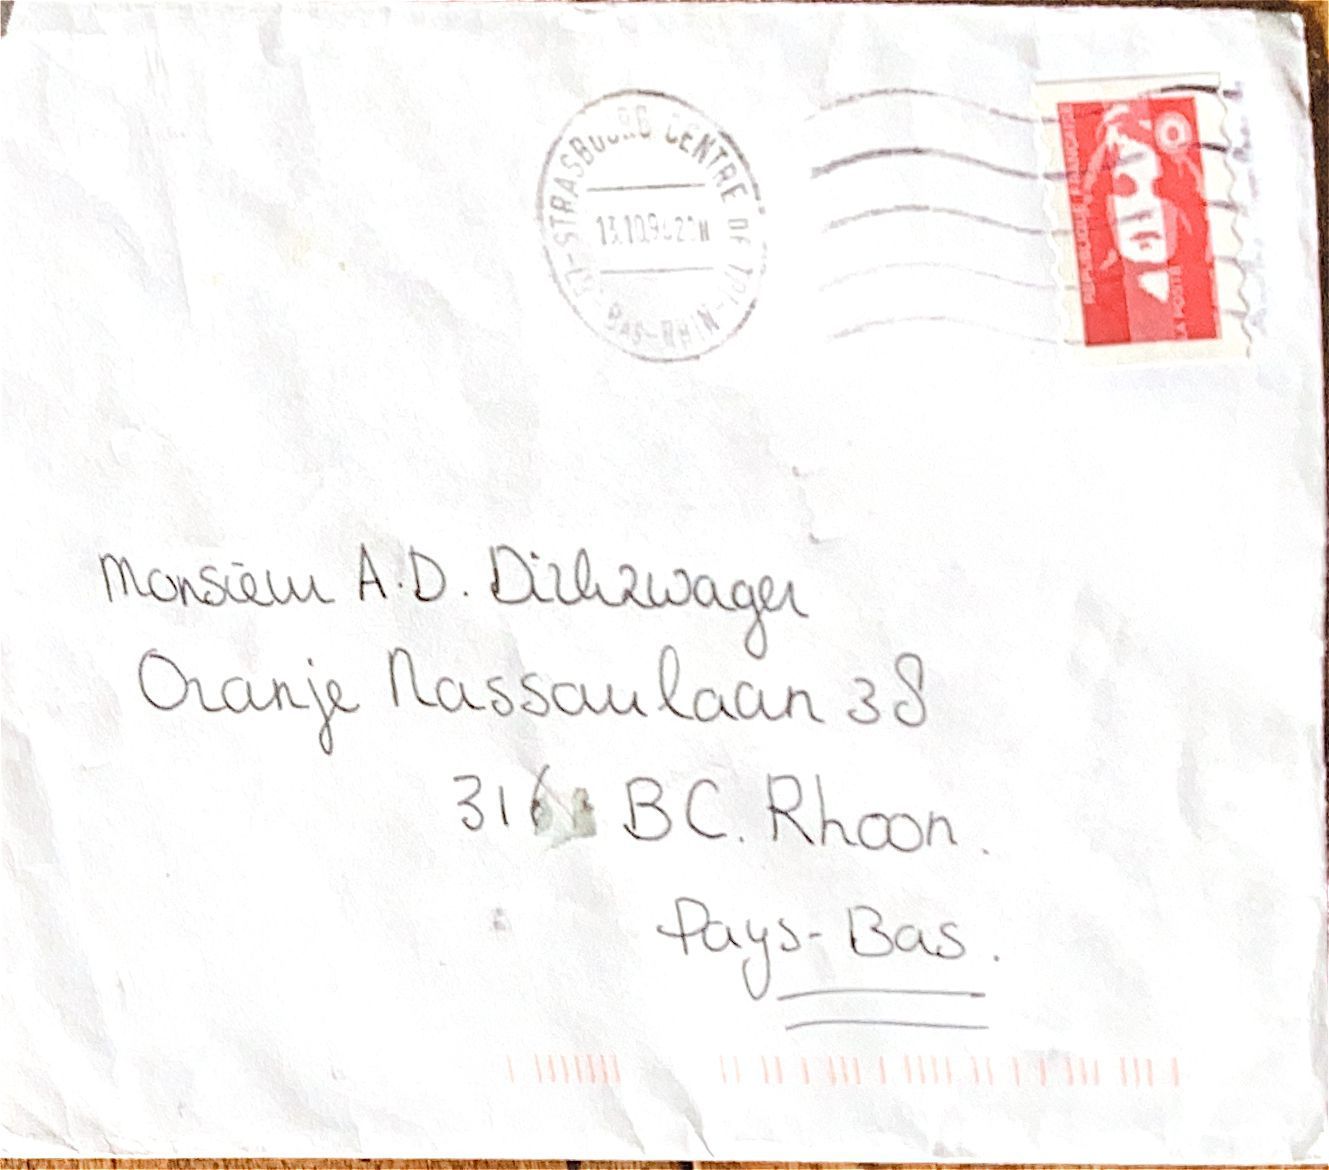 67-STRASBOURG CENTRE DE TRI-
BAS-RHIN
REPUBLIQUE FRANÇAISE
LA POSTE
Monsieur A.D. Dirkzwager
Oranje Nassaulaan 38
BC. Rhoon.
Pays-Bas.